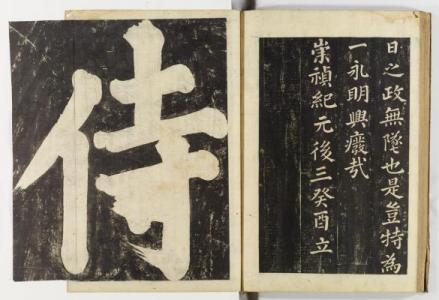 日之政無墜也是豈特為
一永明興癈哉
崇禎紀元後三癸酉立
侍